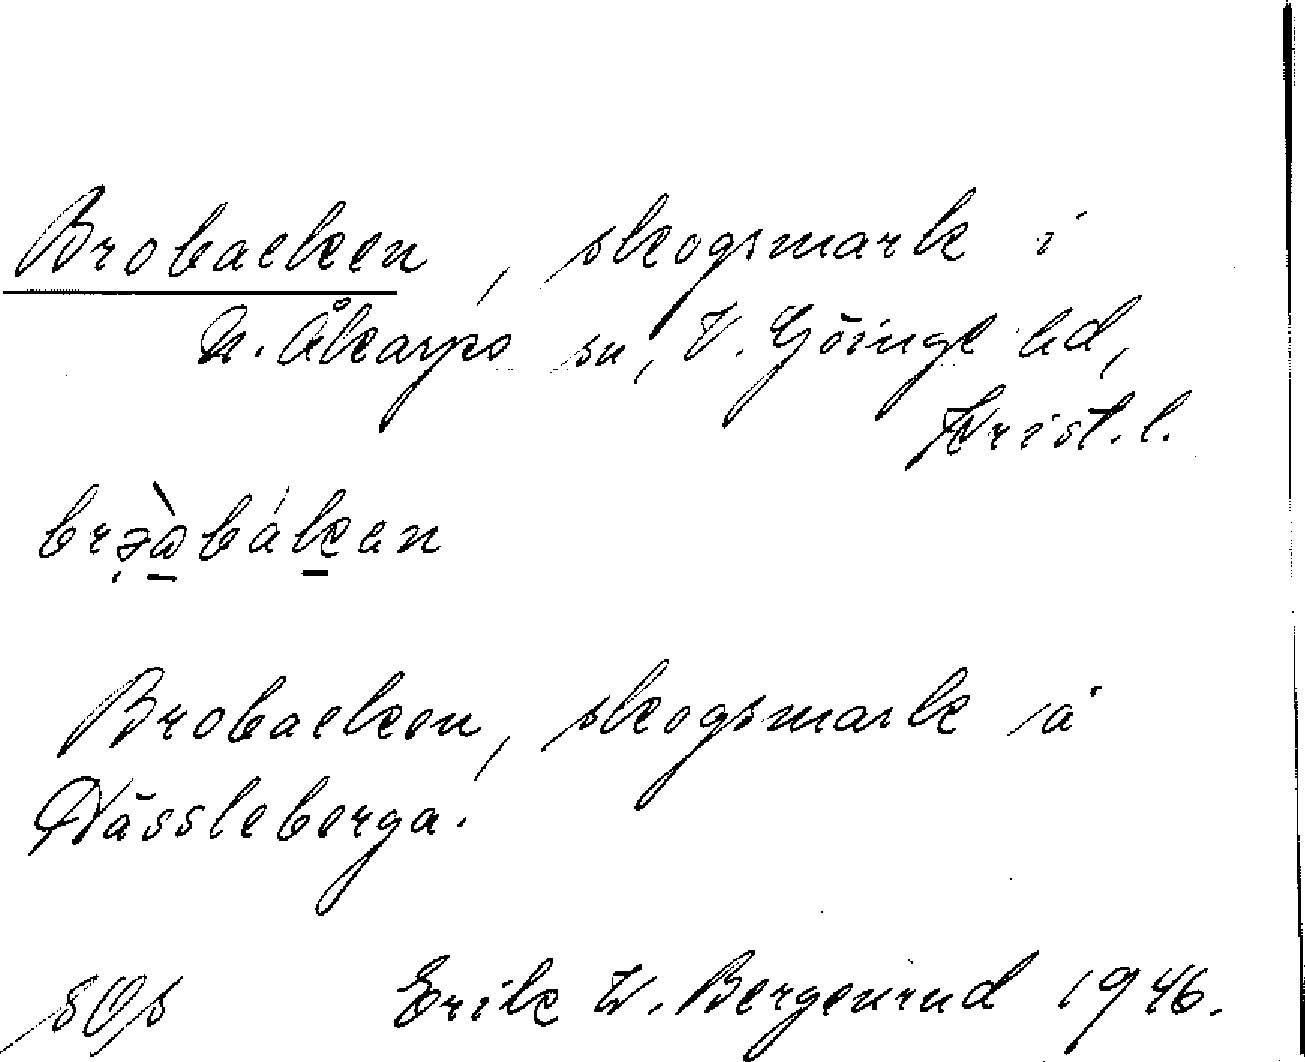 Brobacken, skogsmark i
N. Åkarps sn, V. Göinge hd,
Krist. l.
Brobacken, skogsmark å
Nässleberga.
Erik W. Bergenrud 1946.